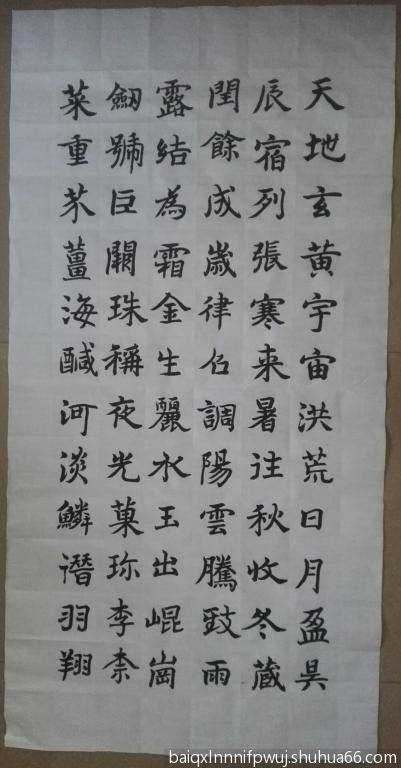 天地玄黄宇宙洪荒日月盈昃
辰宿列張寒来暑往秋收冬蔵
閏餘成歲律吕調陽雲騰致雨
露結為霜金生麗水玉出崐崗
劒號巨闕珠稱夜光菓珎李柰
菜重芥薑海醎河淡鱗潛羽翔
baiqxlnnnifpwuj.shuhua66.com